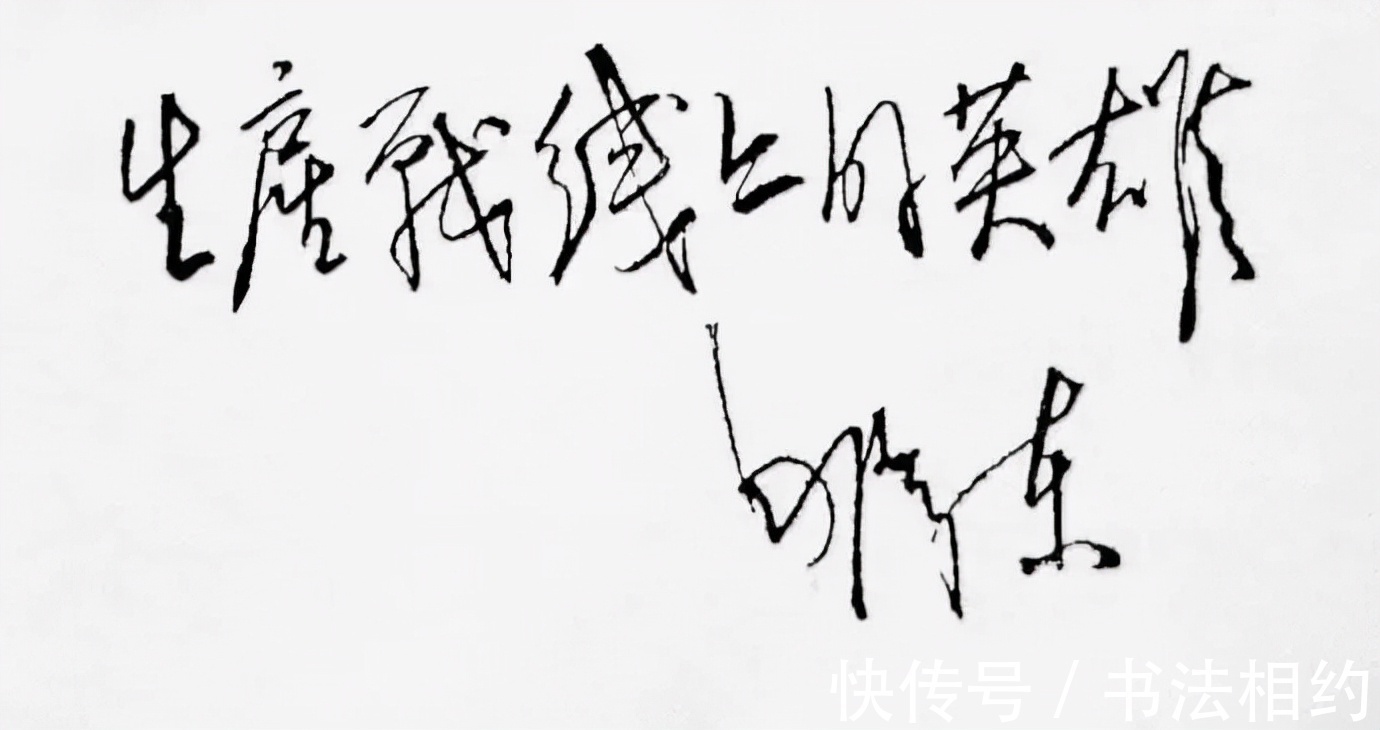 生產戰线上的英雄
毛泽东
快传号 / 书法相约